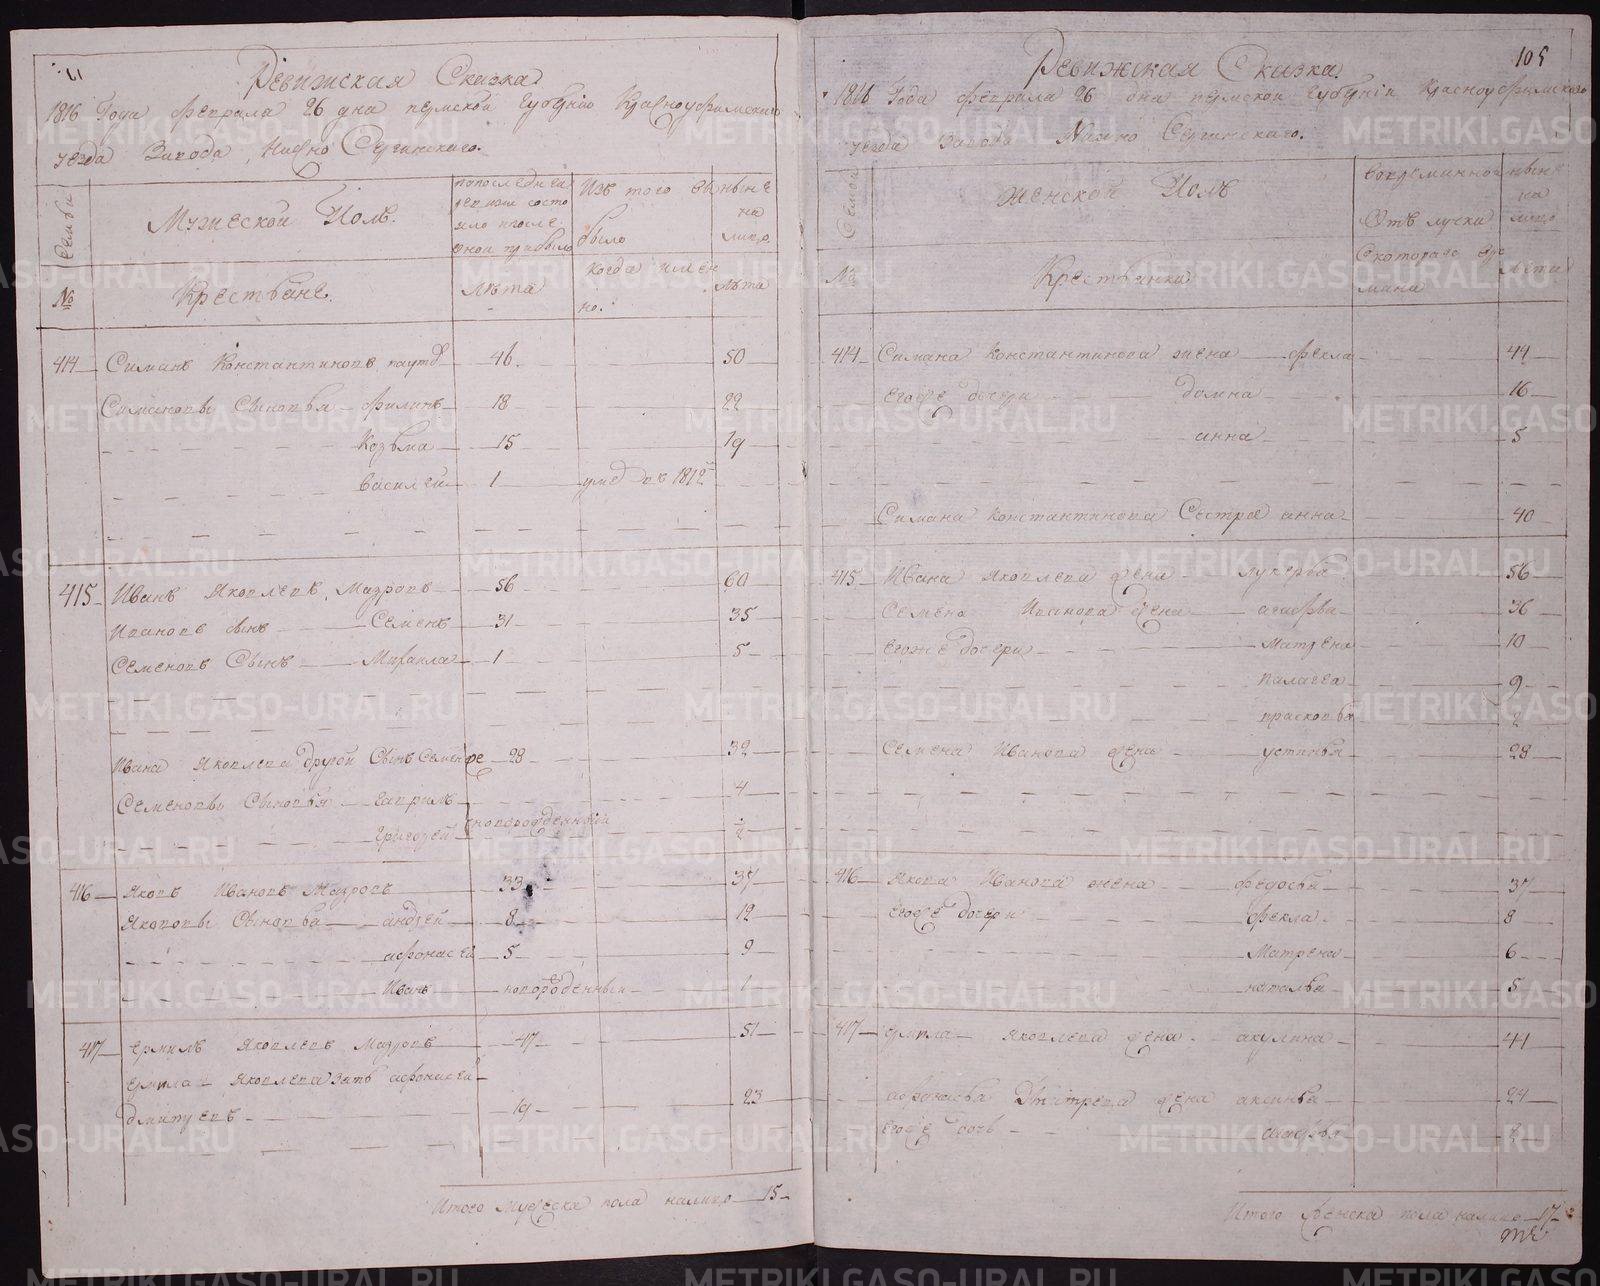 Ревижская Сказка
1816 Года февраля 26 дна пермской Губерніи Красноуфимскаго
уезда Завода Нижно Сергинскаго.
Семьи Мужеской Полъ. по последней ревизіи состояло и после оной прибыло Изъ того выбыло ныне на лицо
№ Крестьяне. лѣта когда имено. лѣта
414 Симанъ Константиновъ 46. 50
Симановы Сыновья Филипъ 18 22
Козьма 15 19
василей 1 въ 1812
415 Иванъ Яковлевъ Мазровъ 56 60
Ивановъ сынъ Семенъ 31 35
Семеновъ Сынъ Михаила 1 5
Ивана Яковлева другой Сынъ Семен же 28 32
Семеновы Сыновья гаврилъ 4
григорей новорожденный
416 Яковъ Ивановъ Мазровъ 33 37
Яковovы Сыновья андрей 8 12
афонасей 5 9
Иванъ новорожденный 1
417 ермилъ Яковлевъ Мазровъ 47 51
ермила Яковлева зять афонасей
дмитреевъ 19 23
Итого Мужеска пола налицо 15
105
Ревижская Сказка
1816 Года февраля 26 дни пермской Губерніи Красноуфимскаго
уезда завода Нижно Сергинскаго.
Семьи Женской Полъ Вовременной Отълучки ныне на лицо
№ Крестьянки Скотораго времяна лѣта
414 Симана Константинова жена фекла 44
Егоже дочери домна 16
анна 5
Симана Константинова Сестра анна 40
415 Ивана Яковлева жена лукерья 56
Семена Иванова жена агафья 36
Егоже дочери матрена 10
палагея 9
прасковья 2
Семена Иванова жена устинья 28
416 Якова Иванова жена федосья 37
Егоже дочери фекла 8
Матрена 6
наталья 5
417 ермила Яковлева жена акулина 44
афонасья Дмитрева жена аксинья 24
Егоже дочь агафья 2
Итого женска пола налицо 17